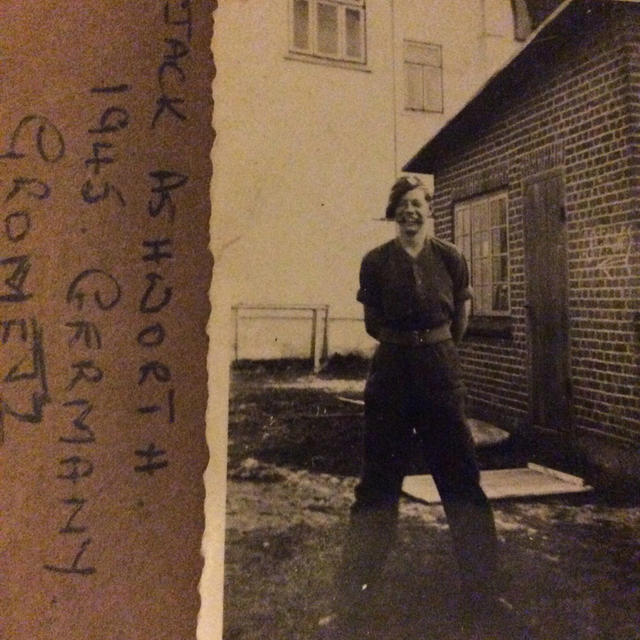 JACK ASHWORTH
1945. GERMANY